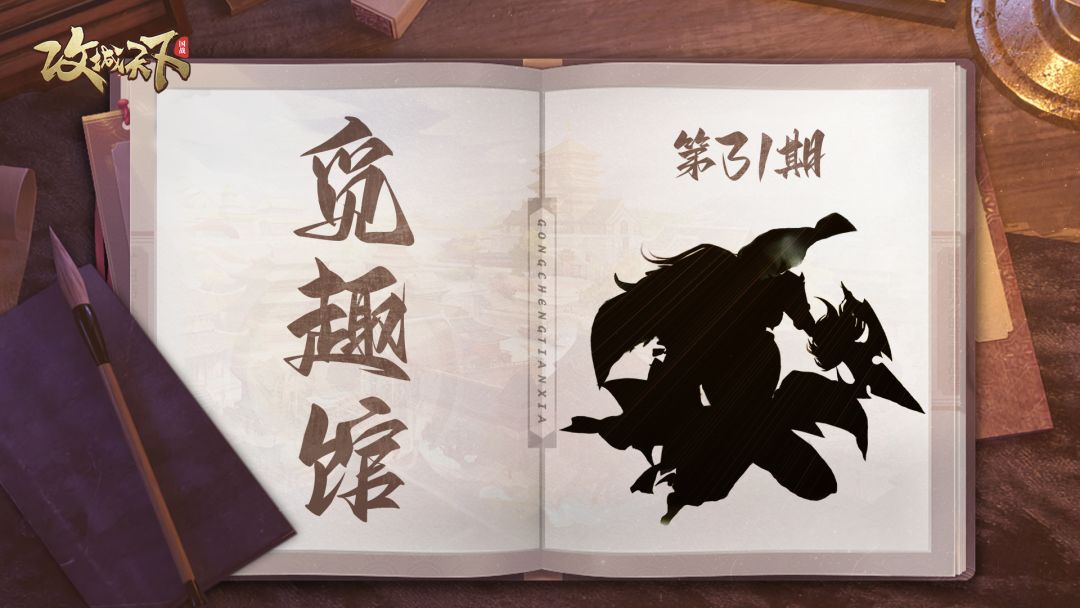 攻城天下
国战
觅趣馆
第31期
GONGCHENGTIANXIA